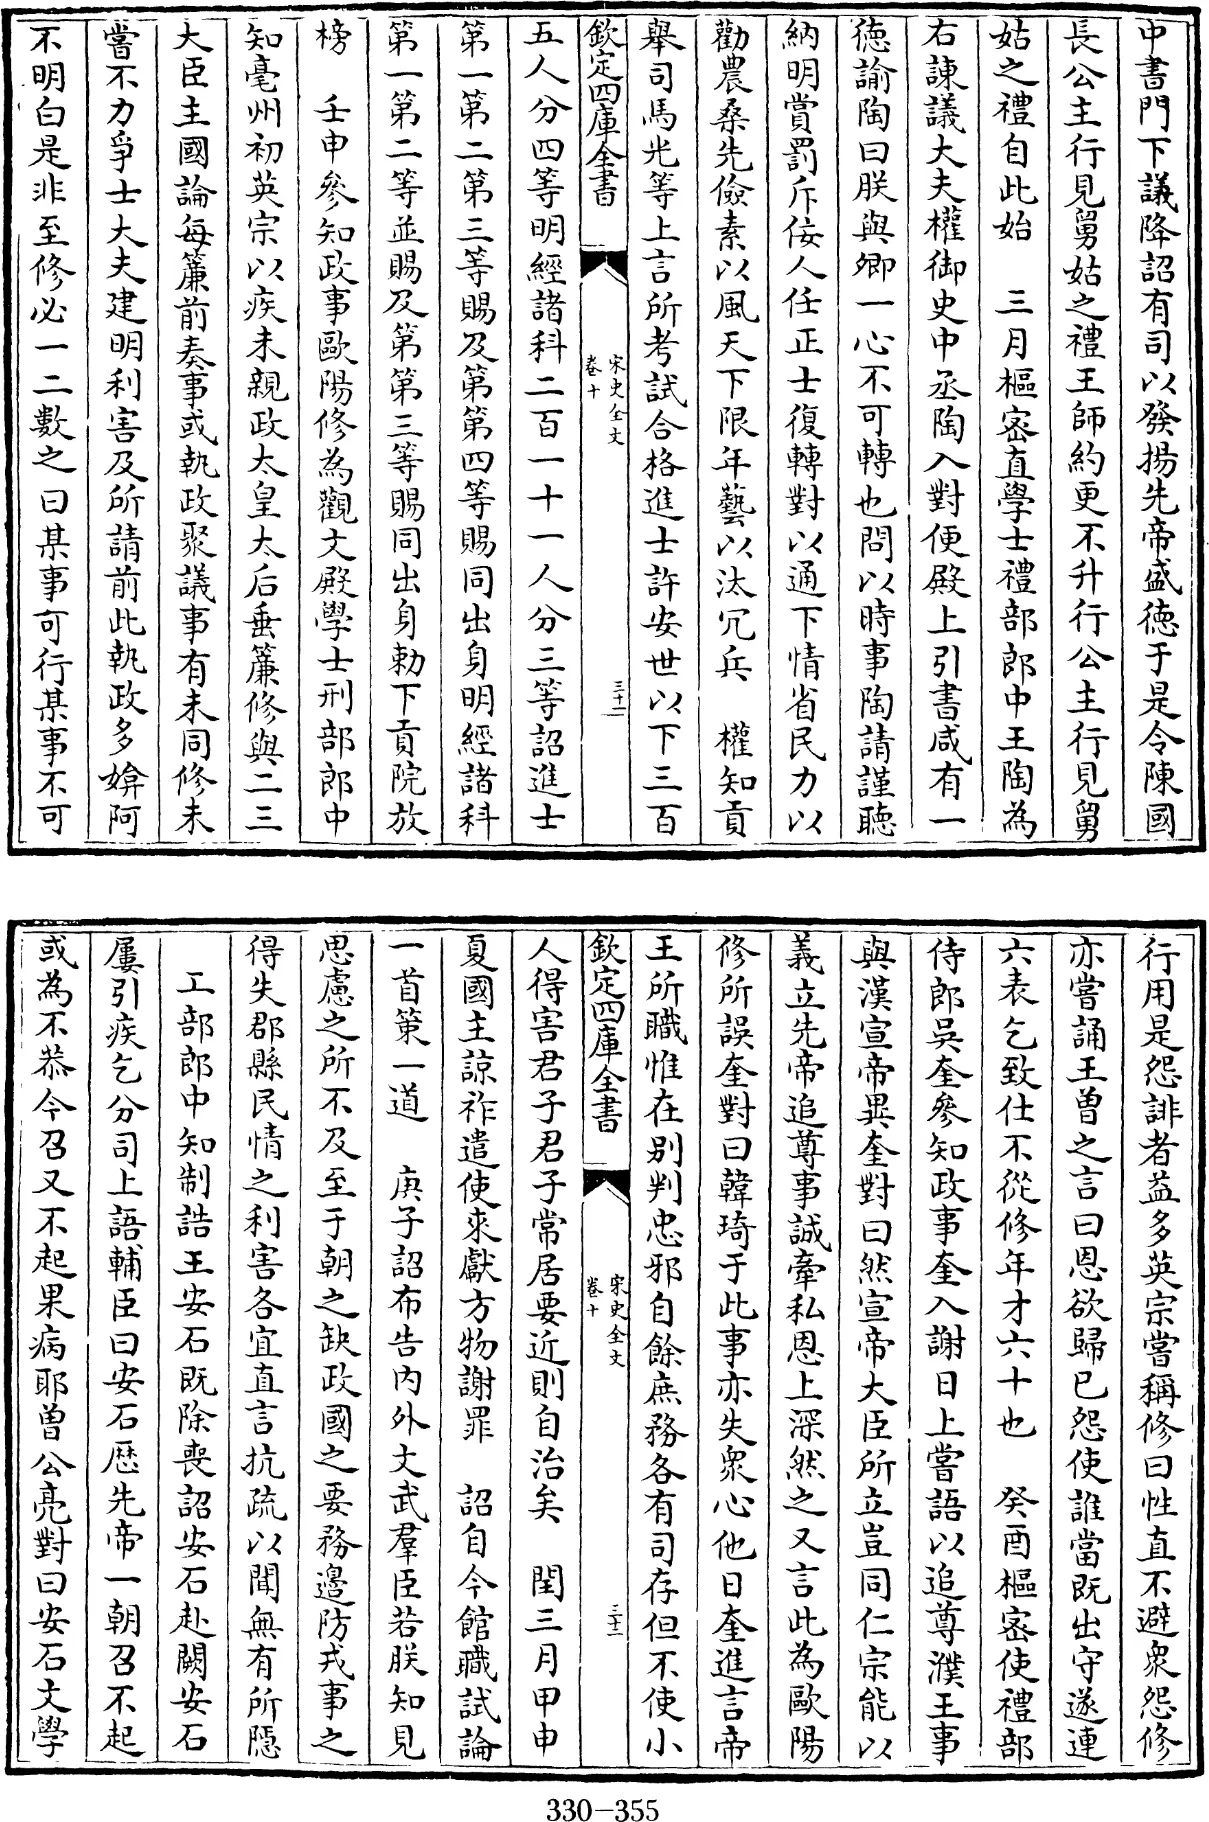 中書門下議降詔有司以發揚先帝盛徳于是令陳國
長公主行見舅姑之禮王師約更不升行公主行見舅
姑之禮自此始　三月樞密直學士禮部郎中王陶為
右諌議大夫權御史中丞陶入對便殿上引書咸有一
徳諭陶曰朕與卿一心不可轉也問以時事陶請謹聴
納明賞罰斥佞人任正士復轉對以通下情省民力以
勸農桑先儉素以風天下限年藝以汰冗兵　權知貢
舉司馬光等上言所考試合格進士許安世以下三百
欽定四庫全書
宋史全文
卷十
三十一
五人分四等明經諸科二百一十一人分三等詔進士
第一第二第三等賜及第第四等賜同出身明經諸科
第一第二等並賜及第第三等賜同出身勅下貢院放
榜　壬申參知政事歐陽修為觀文殿學士刑部郎中
知亳州初英宗以疾未親政太皇太后垂簾修與二三
大臣主國論每簾前奏事或執政聚議事有未同修未
嘗不力爭士大夫建明利害及所請前此執政多媕阿
不明白是非至修必一二數之曰某事可行某事不可
行用是怨誹者益多英宗嘗稱修曰性直不避衆怨修
亦嘗誦王曽之言曰恩欲歸已怨使誰當既出守遂連
六表乞致仕不從修年才六十也　癸酉樞密使禮部
侍郎吳奎參知政事奎入謝日上嘗語以追尊濮王事
與漢宣帝異奎對曰然宣帝大臣所立豈同仁宗能以
義立先帝追尊事誠牽私恩上深然之又言此為歐陽
修所誤奎對曰韓琦于此事亦失衆心他日奎進言帝
王所職惟在别判忠邪自餘庶務各有司存但不使小
欽定四庫全書
宋史全文
卷十
三十二
人得害君子君子常居要近則自治矣　閏三月甲申
夏國主諒祚遣使來獻方物謝罪　詔自今館職試論
一首策一道　庚子詔布告内外文武羣臣若朕知見
思慮之所不及至于朝之缺政國之要務邉防戎事之
得失郡縣民情之利害各宜直言抗疏以聞無有所隠
工部郎中知制誥王安石既除喪詔安石赴闕安石
屢引疾乞分司上語輔臣曰安石歴先帝一朝召不起
或為不恭今召又不起果病耶曽公亮對曰安石文學
330-355